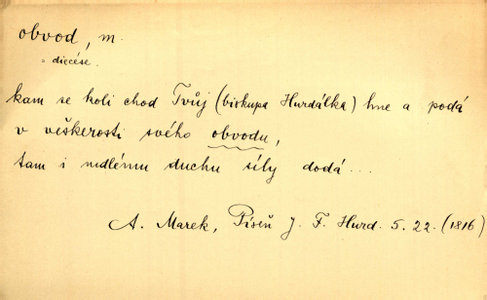 obvod, m.
= diecése.
kam se koli chod Tvůj (biskupa Hurdálka) hne a podá
v veškerosti svého obvodu,
tam i mdlému duchu síly dodá...
A. Marek, Píseň J. F. Hurd. 5. 22. (1816)